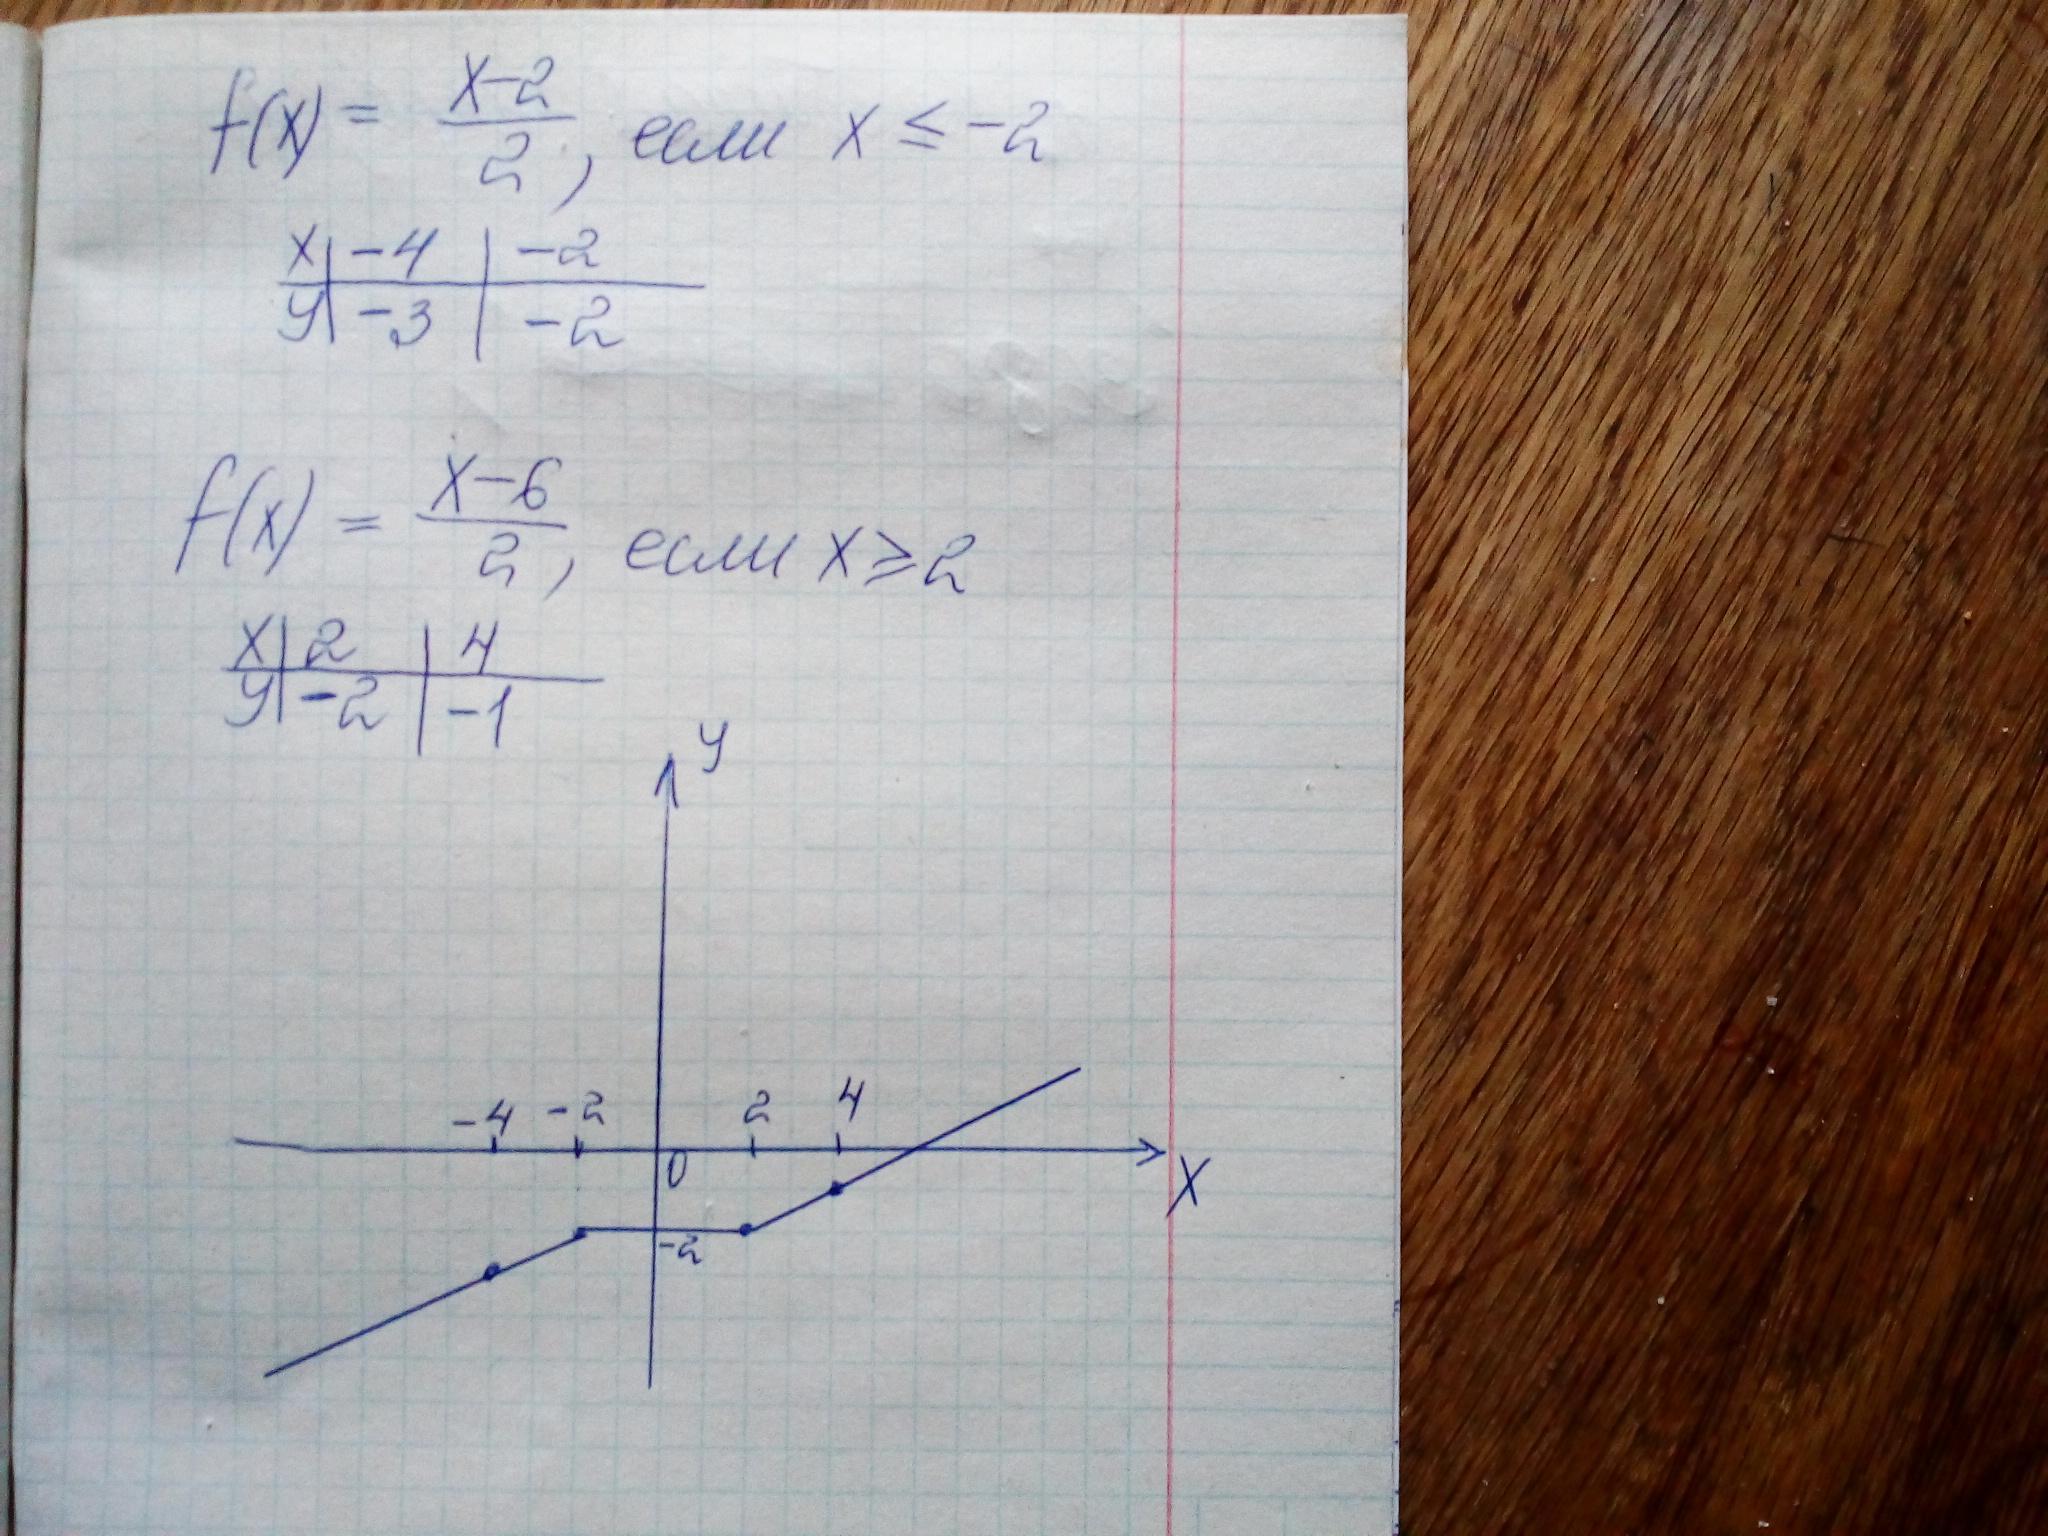 f(x) = x-2/2, если x ≤ -2
x | -4 | -2
y | -3 | -2
f(x) = x-6/2, если x ≥ 2
x | 2 | 4
y | -2 | -1
y
-4 -2 2 4
0
x
-2